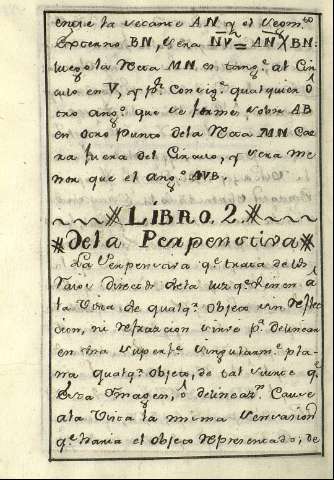 entre la secante AN y el segm.to
Externo BN, sera NV² = AN X BN:
luego la Recta MN. en tang.te al Cir
culo en V, y p.r Consig.te qualquier ô
tro ang.o que se forme sobre AB
en otro punto dela Recta MN. Cae
ra fuera del Circulo, y sera me
nor que el ang.o AVB.
LÍBRO. 2.
dela Perspectiva
La Perspectiva q.e trata de los
Raios directos dela luz q.e vienen â
la Vista de qualq.r Objeto sin refle
cion, ni refraccion sirve p.a delinear
en una superf.e singularm.te pla-
na qualq.r Objeto, de tal suerte q.e
Esta Imagen, ô delineaz.n Cause
ala Vista la misma sensasion
q.e haria el objeto representado; de